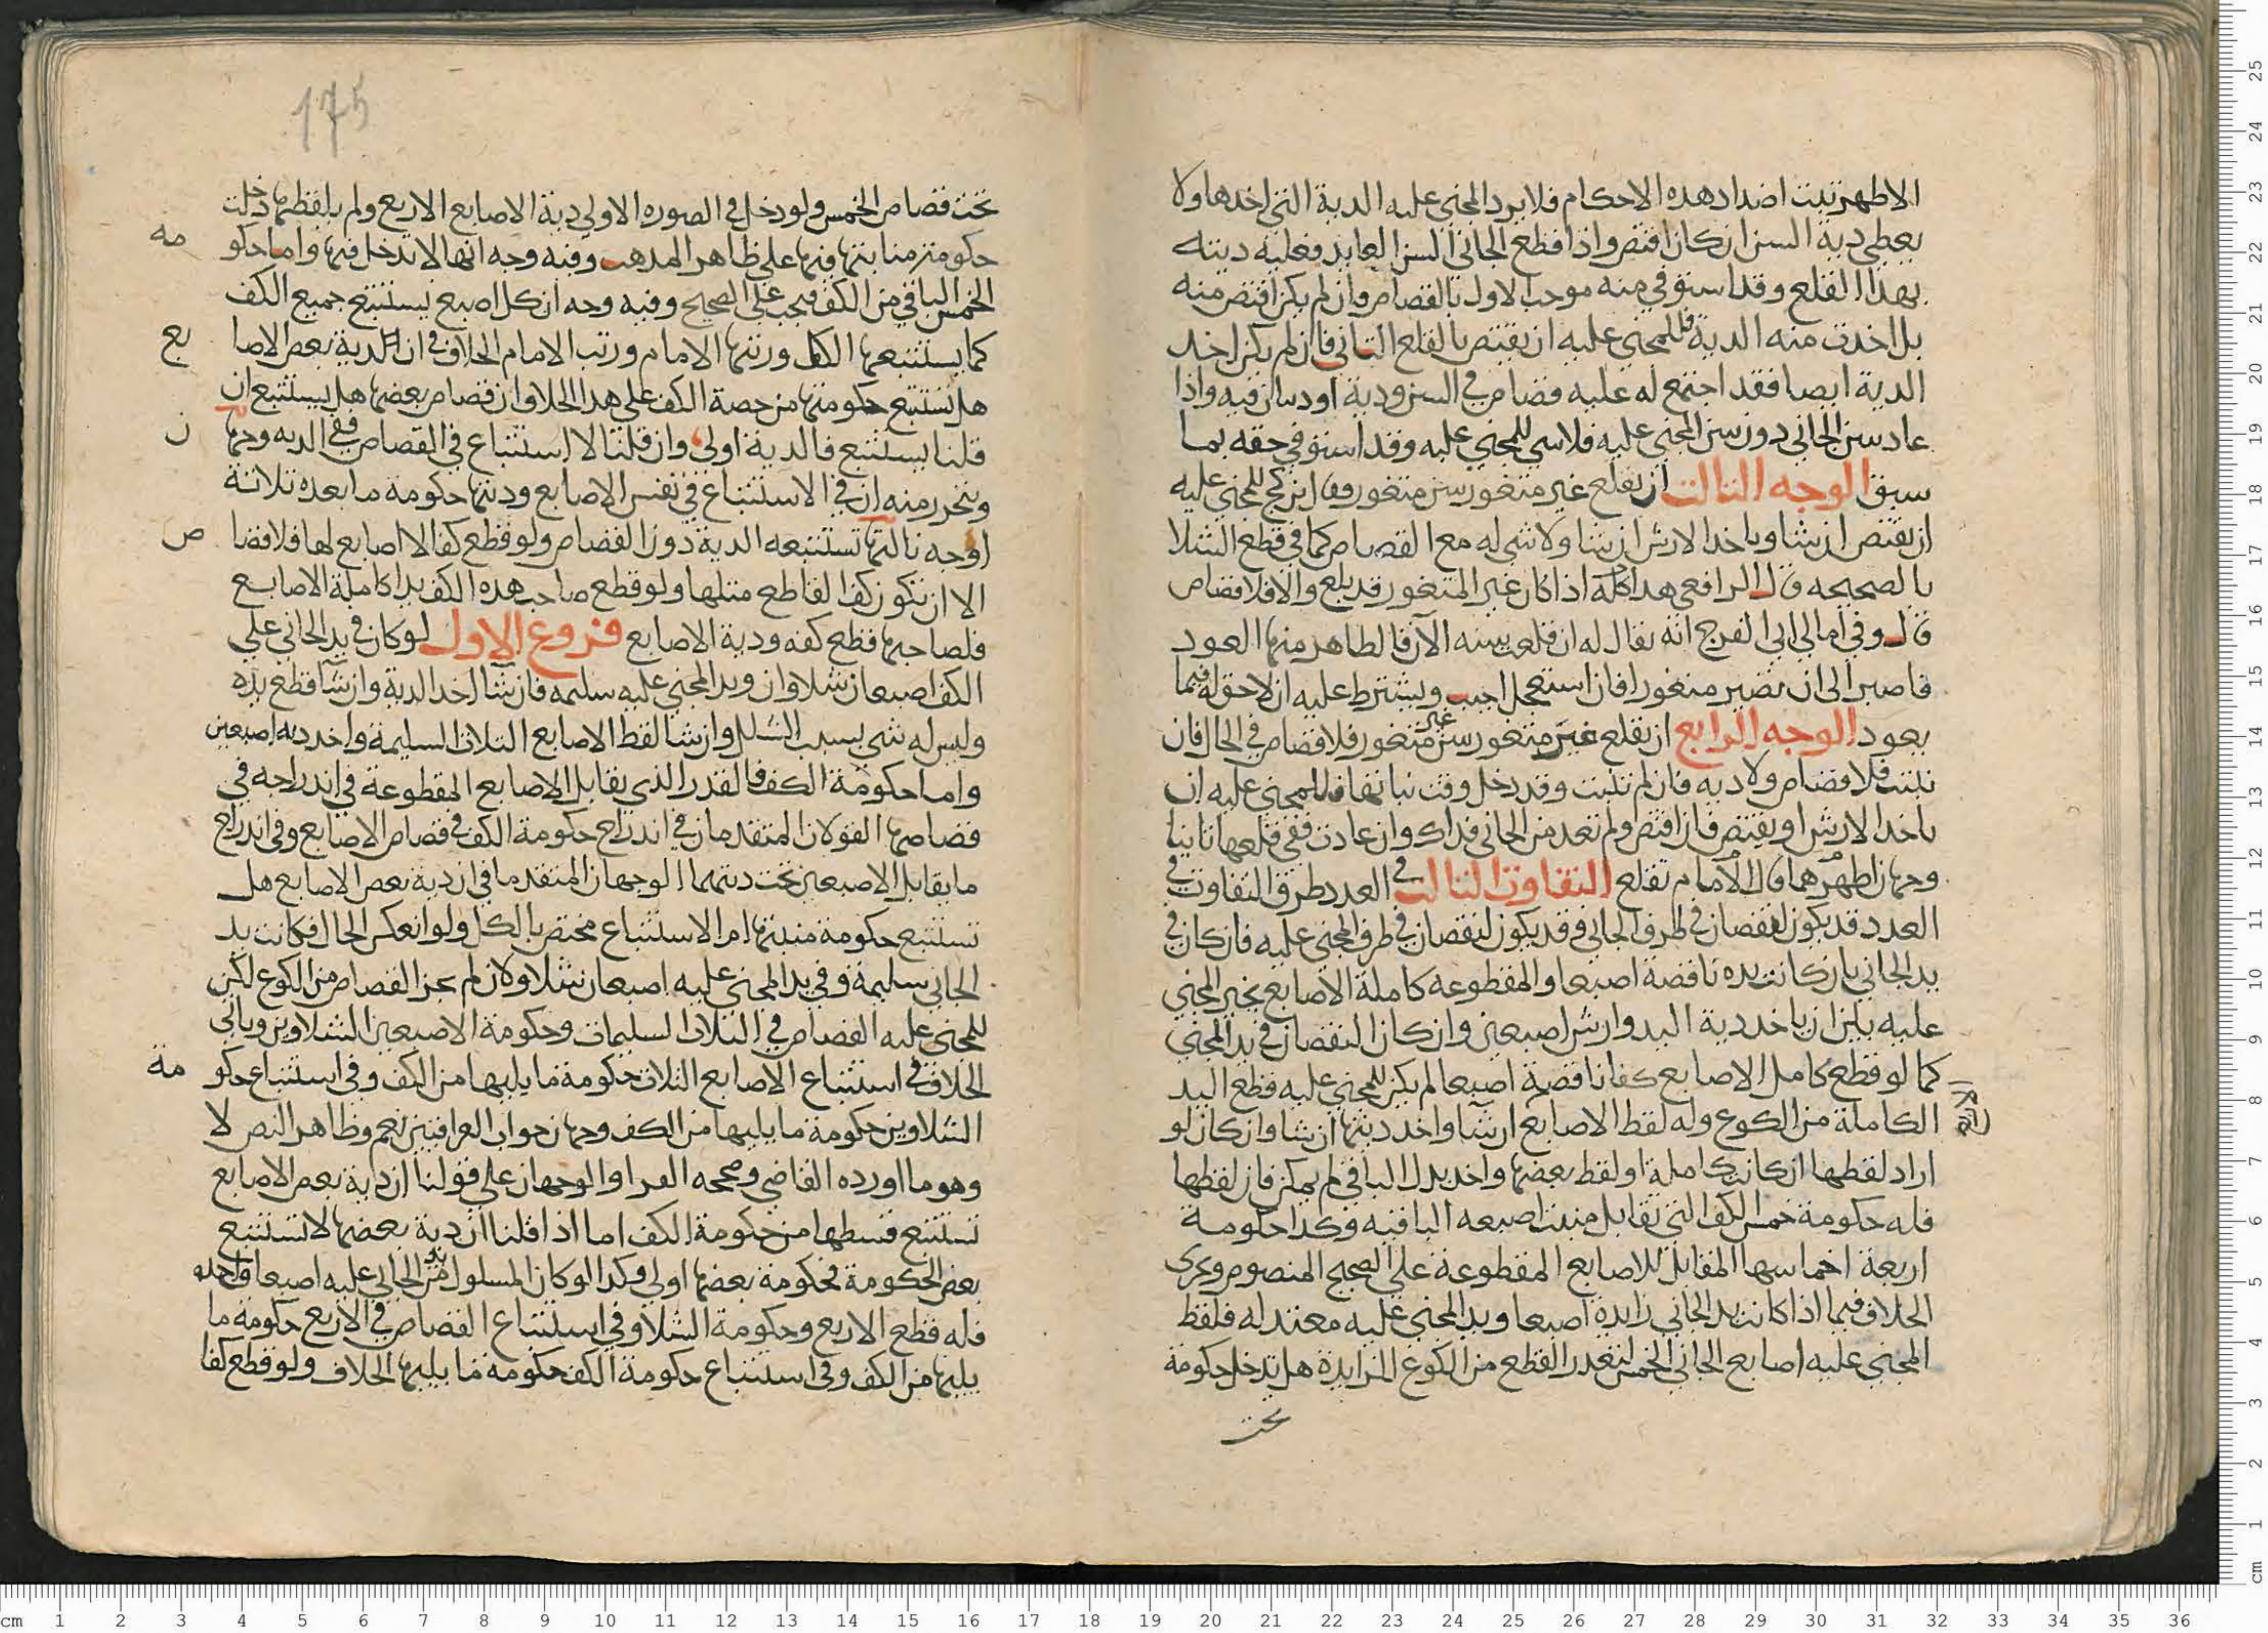 الاظهر تثبت اضداد هذه الاحكام فلا يرد المجني عليه الدية التي اخذها ولا
يعطي دية السن ان كان اقتص واذا قطع الجاني السن العايد فعليه ديته
بهذا القلع وقد استوفي منه موجب الاول بالقصاص وان لم يكن اقتص منه
بل اخذت منه الدية فللمجني عليه ان يقتص بالقلع الثاني فان لم يكن اخذ
الدية ايضا فقد اجتمع له عليه قصاص في السن ودية او ديتان فيه واذا
عاد سن الجاني دون سن المجني عليه فلا شي للمجني عليه وقد استوفي حقه بما
سبق الوجه الثالث ان يقلع غير مثغور سن مثغور وقال ابن كج للمجني عليه
ان يقتص ان شا وياخذ الارش ان شا ولا شي له مع القصاص كما في قطع الشلا
بالصحيحه قال الرافعي هذا كله اذا كان غير المثغور قد بلغ والا فلا قصاص
قال وفي امالي ابي الفرج انه يقال له ان قلعت سنه الآن فالظاهر منها العود
فاصبر الى ان يصير مثغورا فان استعجل اجيب ويشترط عليه ان لا حق له فيما
يعود الوجه الرابع ان يقلع غير مثغور سن غير مثغور فلا قصاص في الحال فان
نبتت فلا قصاص ولا دية فان لم تنبت وقد دخل وقت نباتها فللمجني عليه ان
ياخذ الارش او يقتص فان اقتص ولم تعد من الجاني فذاك وان عادت ففي قلعها ثانيا
وجهان اظهرهما قال الامام تقلع التفاوت الثالث في العدد طرق التفاوت في
العدد قد يكون لنقصان في طرف الجاني وقد يكون لنقصان في طرف المجني عليه فان كان في
يد الجاني بان كانت يده ناقصة اصبعا والمقطوعه كاملة الاصابع يخير المجني
عليه بين ان ياخذ دية اليد وارش اصبعين وان كان النقصان في يد المجني
كما لو قطع كامل الاصابع كفا ناقصة اصبعا لم يكن للمجني عليه قطع اليد
الكاملة من الكوع وله لقط الاصابع ان شا واخذ ديتها ان شا وان كان لو
اراد لقطها ان كانت كاملة او لقط بعضها واخذ بدل الباقي لم يمكن فان لقطها
فله حكومة خمس الكف التي تقابل منبت اصبعه الباقيه وكذا حكومة
اربعة اخماسها المقابل للاصابع المقطوعة على الصحيح المنصوص ويجري
الخلاف فيما اذا كانت يد الجاني زايدة اصبعا ويد المجني عليه معتدله فلقط
المجني عليه اصابع الجاني الخمس لتعذر القطع من الكوع الزايدة هل تدخل حكومة
تحت
175
تحت قصاص الخمس ولو دخل في الصوره الاولي دية الاصابع الاربع ولم يلقطها دخلت
حكومة منابتها فيها على ظاهر المذهب وفيه وجه انها لا تدخل فيها واما حكومه
الخمس الباقي من الكف فيجب على الصحيح وفيه وجه ان كل اصبع يستتبع جميع الكف
كما يستتبعها الكل ورتبها الامام ورتب الامام الخلاف في ان دية بعض الاصابع
هل تستتبع حكومتها من حصة الكف على هذا الخلاف وان قصاص بعضها هل يستتبع ان
قلنا يستتبع فالدية اولى وان قلنا لا استتباع في القصاص ففي الديه وجهان
ويتحرر منه ان في الاستتباع في نفس الاصابع وديتها حكومة ما بعده ثلاثة
اوجه ثالثها تستتبعه الدية دون القصاص ولو قطع كفا لا اصابع لها فلا قصاص
الا ان تكون كف القاطع مثلها ولو قطع صاحب هذه الكف يدا كاملة الاصابع
فلصاحبها قطع كفه ودية الاصابع فروع الاول لو كان في يد الجاني علي
الكف اصبعان شلاوان ويد المجني عليه سليمه فان شا اخذ الدية وان شا قطع يده
وليس له شي بسبب الشلل وان شا لقط الاصابع الثلاث السليمة واخذ ديه اصبعين
واما حكومة الكف فالقدر الذي يقابل الاصابع المقطوعة في اندراجه في
قصاصها القولان المتقدمان في اندراج حكومة الكف في قصاص الاصابع وفي اندراج
ما يقابل الاصبعين تحت ديتهما الوجهان المتقدما في ان دية بعض الاصابع هل
تستتبع حكومة منبتها ام الاستتباع مختص بالكل ولو انعكس الحال فكانت يد
الجاني سليمة وفي يد المجني عليه اصبعان شلاوان لم يجز القصاص من الكوع لكن
للمجني عليه القصاص في الثلاث السليمات وحكومة الاصبعين الشلاوين وياتي
الخلاف في استتباع الاصابع الثلاث حكومة ما يليها من الكف وفي استتباع حكومة
الشلاوين حكومة ما يليها من الكف وجهان جواب العراقيين نعم وظاهر النص لا
وهو ما اورده القاضي وصححه الفرا والوجهان على قولنا ان دية بعض الاصابع
تستتبع قسطها من حكومة الكف اما اذا قلنا ان دية بعضها لا تستتبع
بعض الحكومة فحكومة بعضها اولي وكذا لو كان المسلول من يد الجاني عليه اصبعا واحده
فله قطع الاربع وحكومة الشلا وفي استتباع القصاص في الاربع حكومة ما
يليها من الكف وفي استتباع حكومة الكف حكومة ما يليها الخلاف ولو قطع كفا